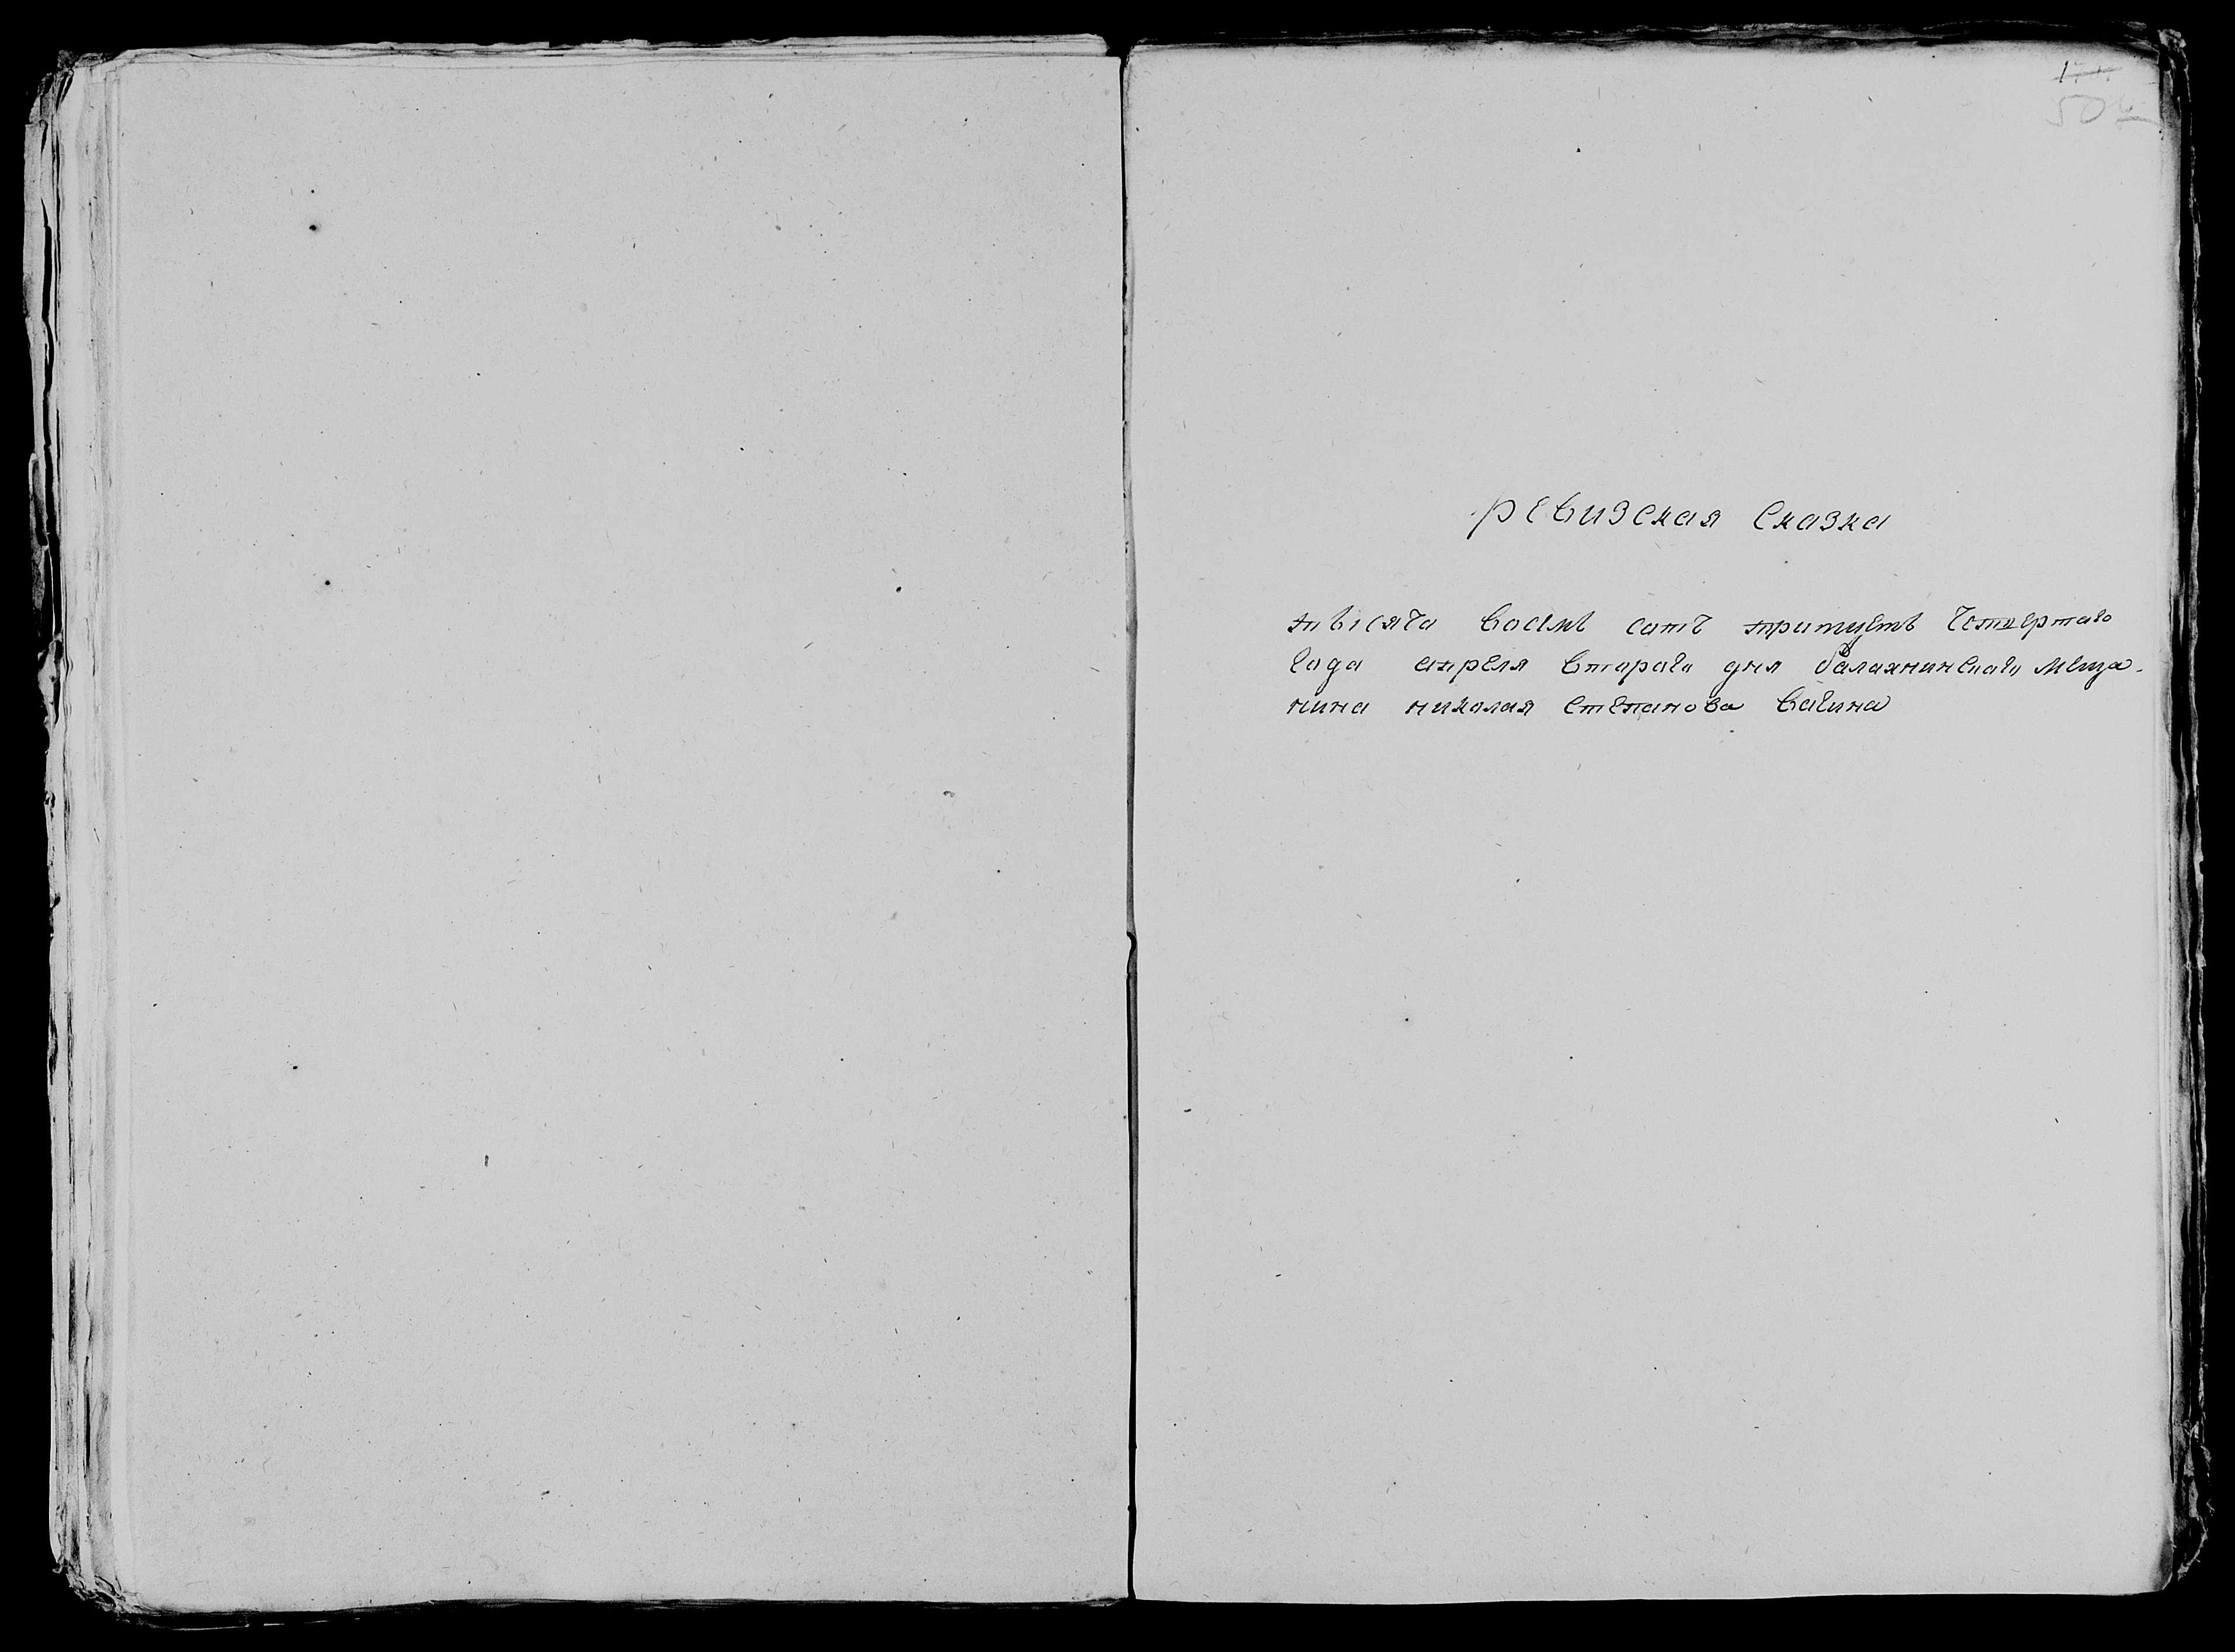 ревизская сказка
тысяча восемь сотъ тритцеть четвертаго
года апреля втораго дня балахнинскаго меща-
нина николая степанова вагина